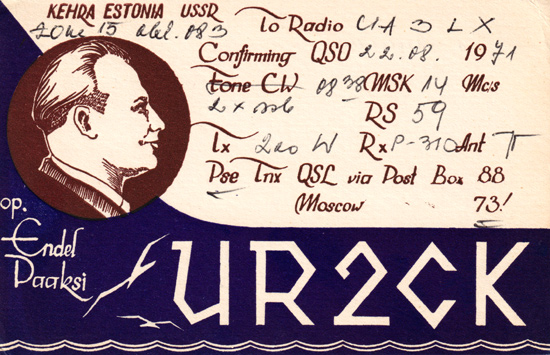 KEHRA ESTONIA USSR
Zone 15 obl. 083
To Radio UA 3 LX
Confirming QSO 22.08. 1971
Tone CW 0838 MSK 14 Mcs
2 x ssb RS 59
Tx 200 W Rx P-310 Ant
Pse Tnx QSL via Post Box 88
Moscow 73!
op.
Endel
Paaksi
UR2CK